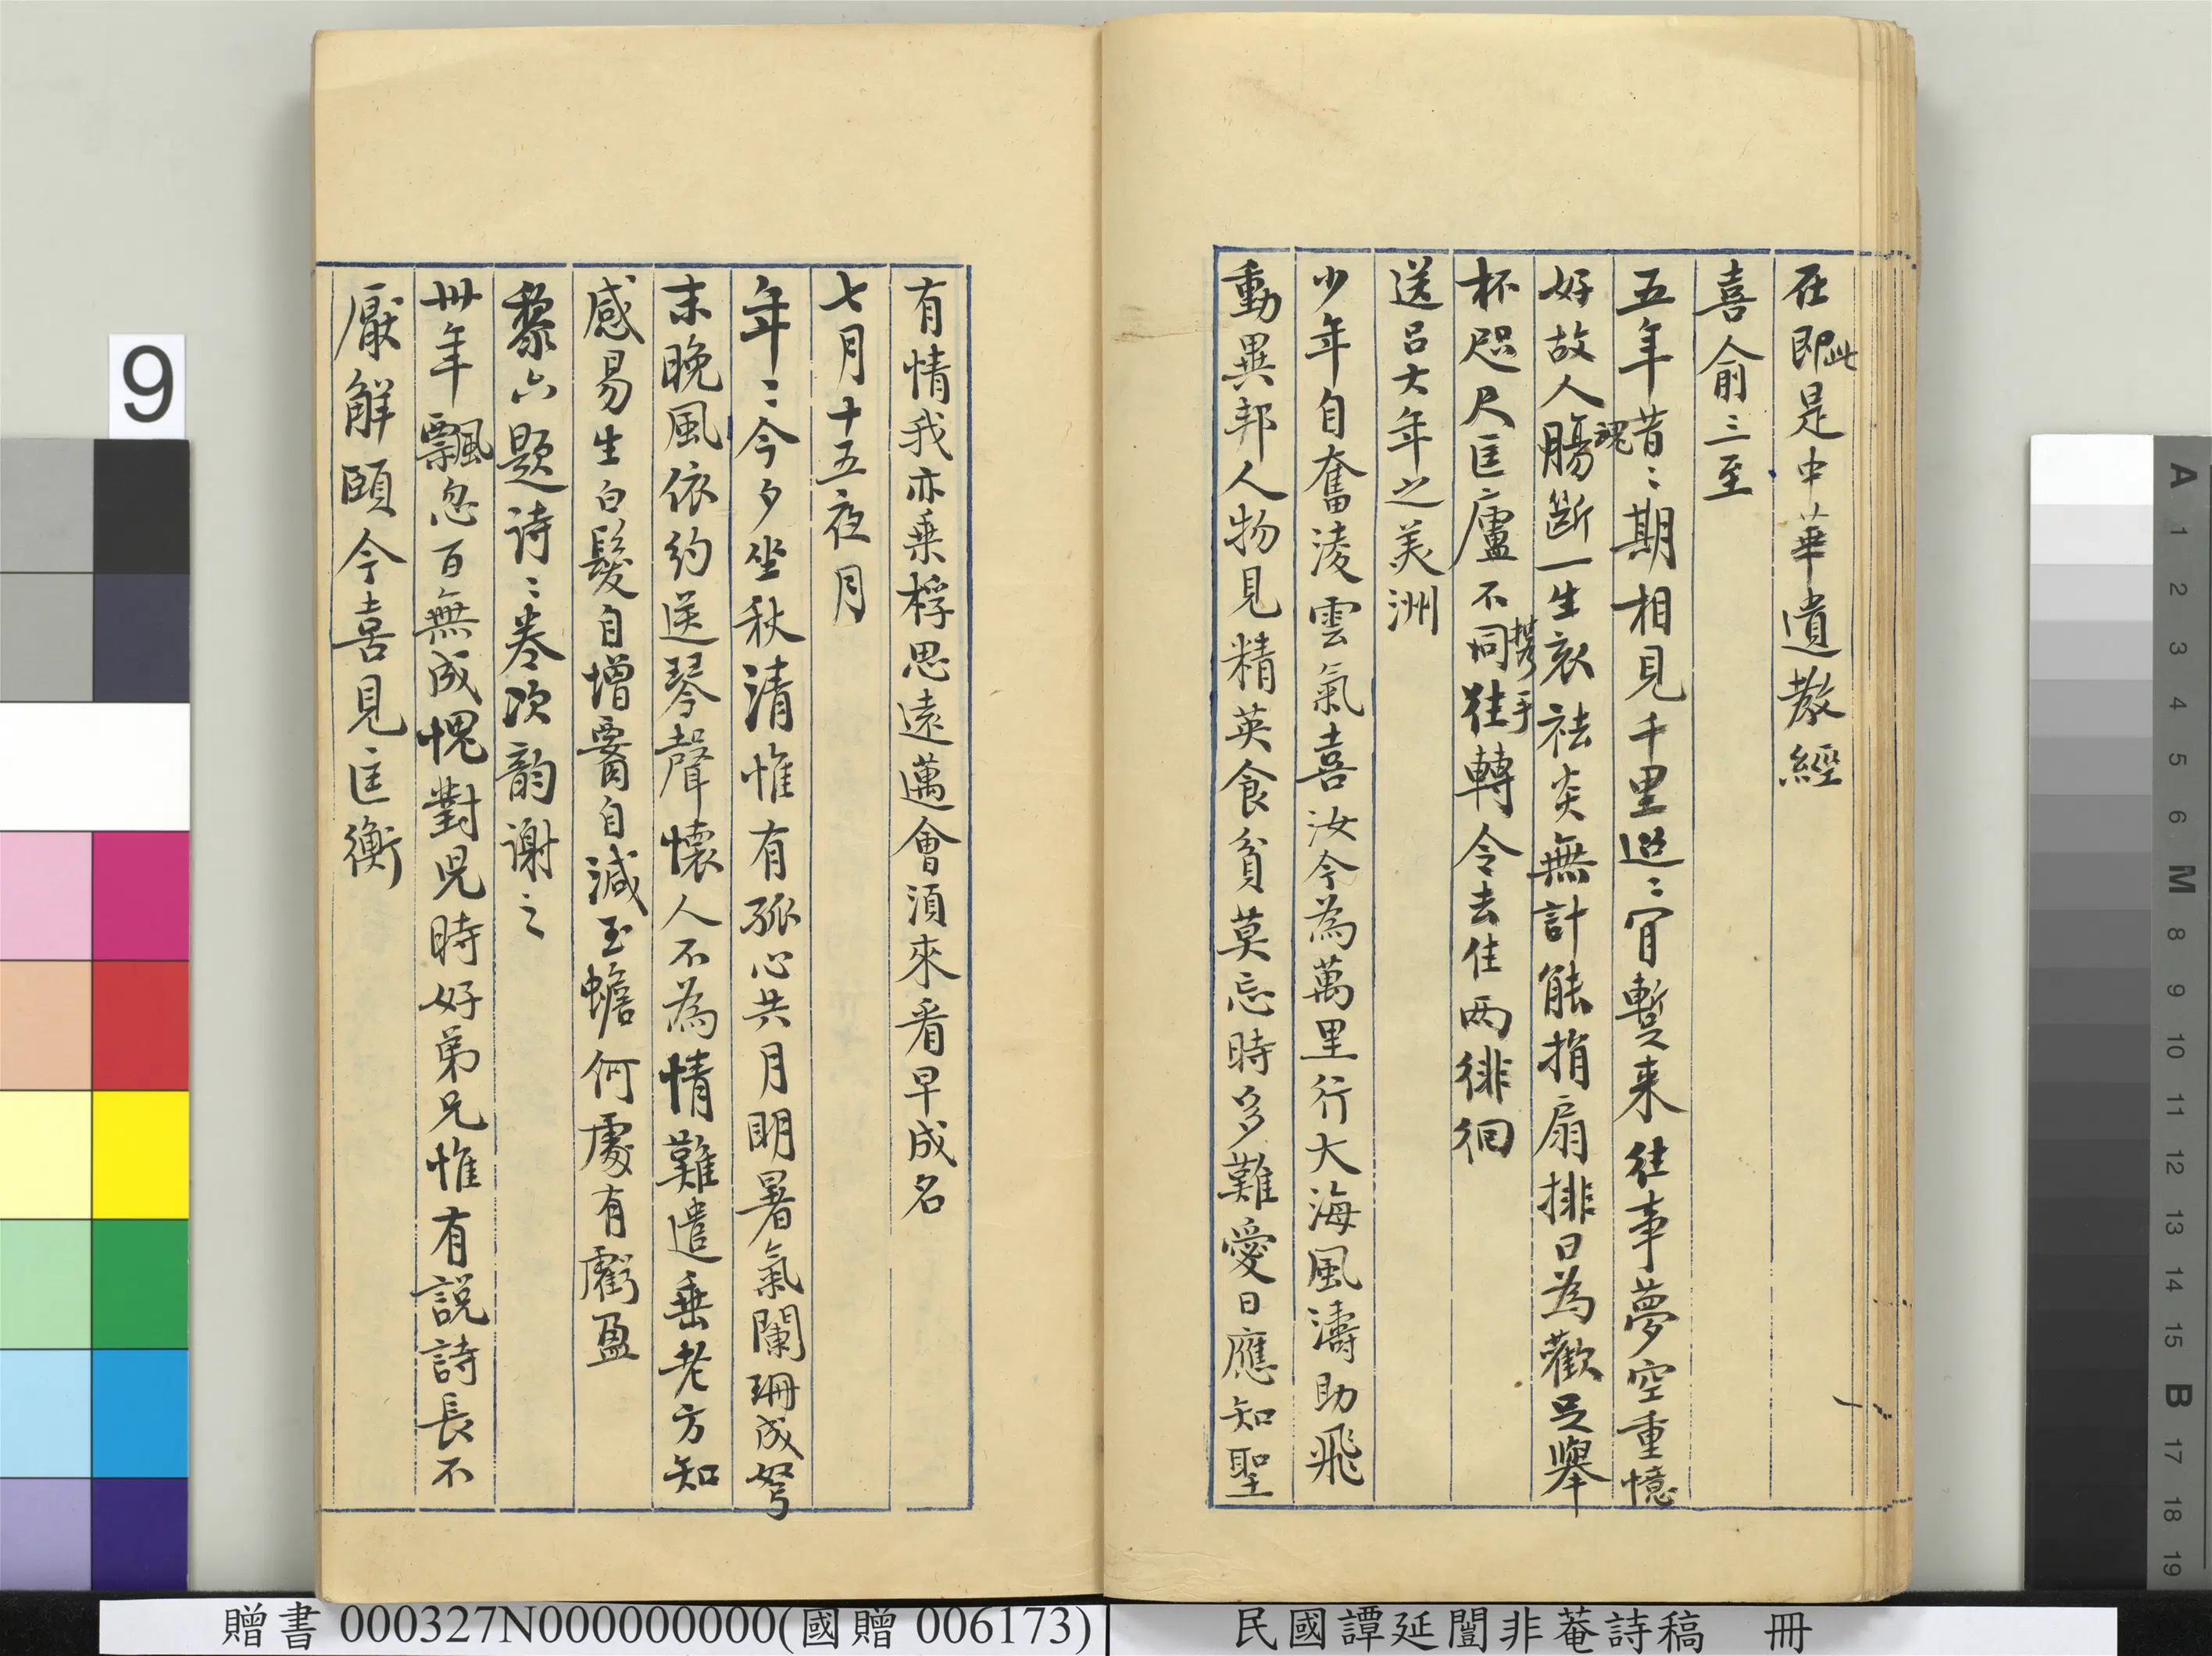 在即此是中華遺教經
喜俞三至
五年昔昔期相見千里迢迢肯暫来往事夢空重憶
好故人腸魂斷一生哀祛炎無計能捐扇排日為歡足舉
杯咫尺匡廬不同往攜手轉令去住两徘徊
送呂大年之美洲
少年自奮淩雲氣喜汝今為萬里行大海風濤助飛
動異邦人物見精英食貧莫忘時多難愛日應知聖
有情我亦乗桴思遠邁會須來看早成名
七月十五夜月
年年今夕坐秋清惟有孤心共月明暑氣闌珊成弩
末晚風依約送琴聲懷人不為情難遣垂老方知
感易生白髮自增要自減玉蟾何處有虧盈
黎六題詩詩卷次韵謝之
卅年飄忽百無成愧對兒時好弟兄惟有説詩長不
厭解頤今喜見匡衡
9
A 1 2 3 4 5 6 M 8 9 10 11 12 13 14 15 B 17 18 19
贈書 000327N000000000(國贈 006173)
民國譚延闓非菴詩稿 冊